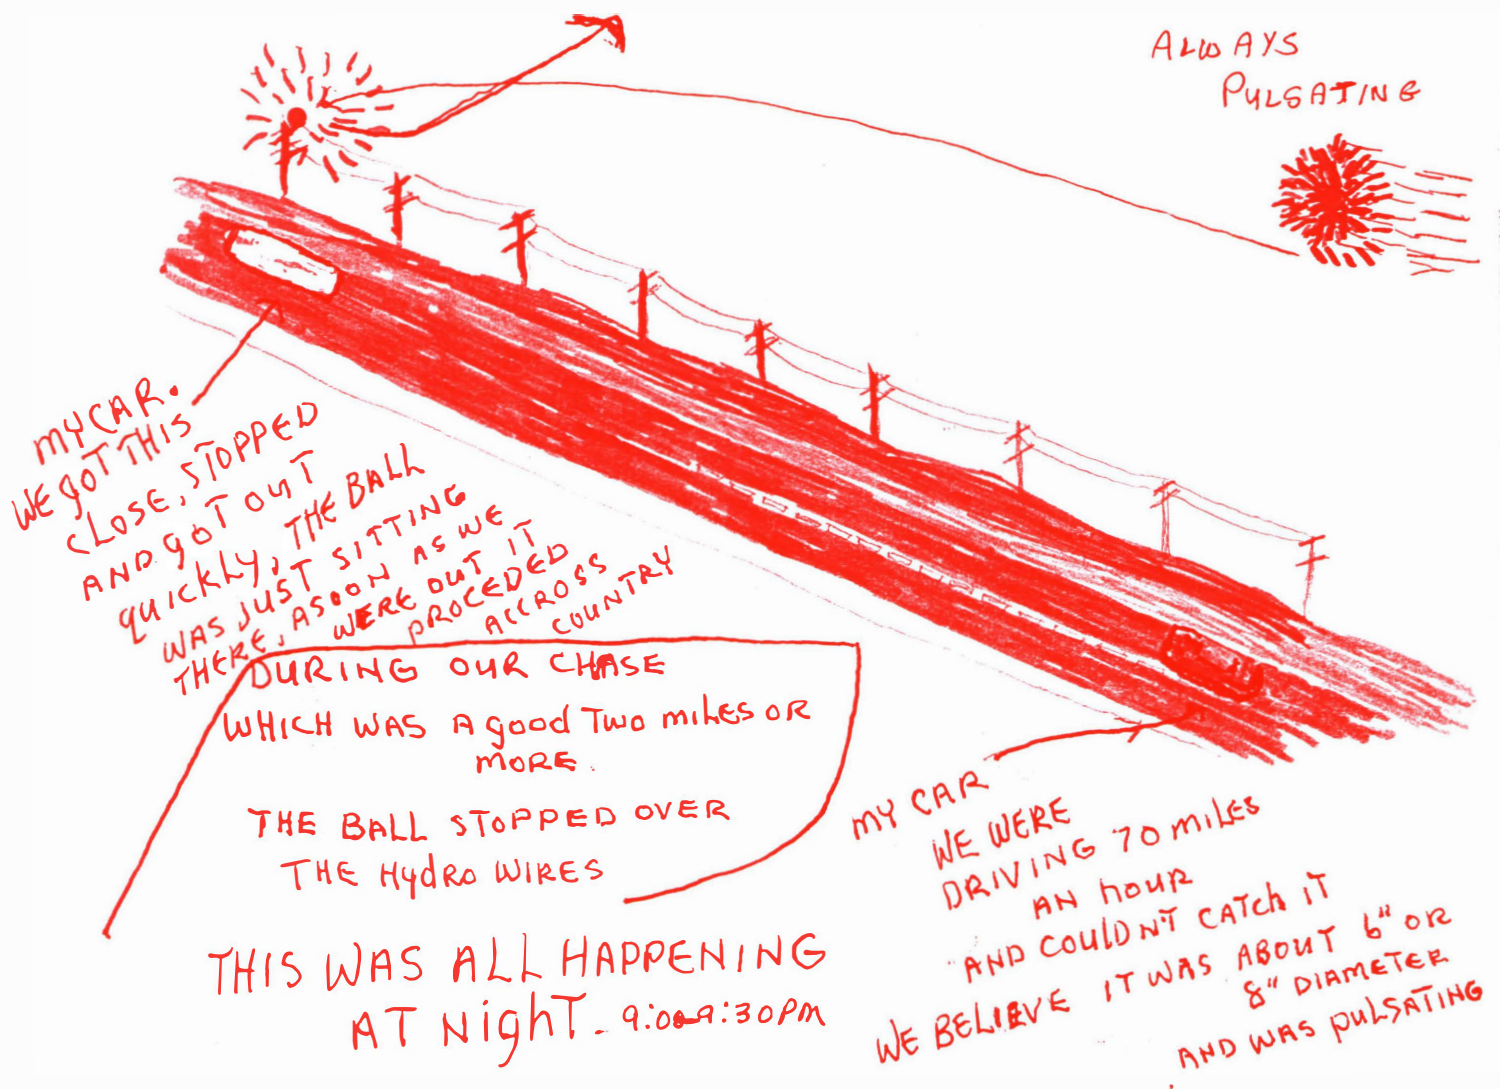 ALWAYS
PULSATING
MY CAR.
WE GOT THIS
CLOSE, STOPPED
AND GOT OUT
QUICKLY, THE BALL
WAS JUST SITTING
THERE, ASOON AS WE
WERE OUT IT
PROCEDED
ACCROSS
COUNTRY
DURING OUR CHASE
WHICH WAS A good TWO miLES OR
MORE.
THE BALL STOPPED OVER
THE HydRO WIRES
THIS WAS ALL HAPPENING
AT NighT. 9:00-9:30PM
MY CAR
WE WERE
DRIVING 70 miLES
AN hOUR
AND COULDN'T CATCh iT
WE BELIEVE IT WAS ABOUT 6" OR
8" DIAMETER
AND WAS PULSATING